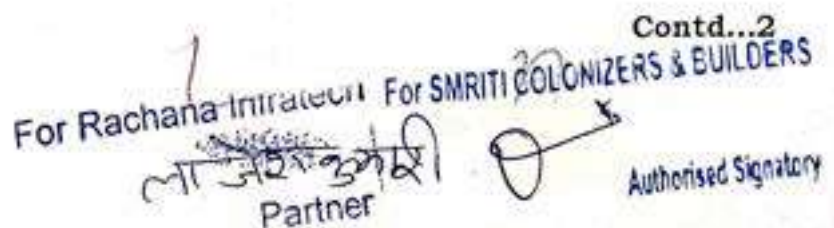 Contd...2
For Rachana Infratech For SMRITI COLONIZERS & BUILDERS
Partner
Authorised Signatory